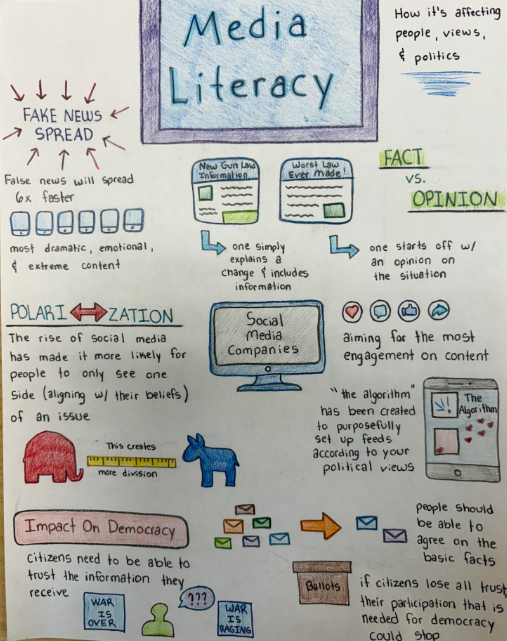 Media
Literacy
How it's affecting
people, views,
& politics
FAKE NEWS
SPREAD
False news will spread
6x faster
most dramatic, emotional,
& extreme content
New Gun Law
Information
Worst Law
Ever Made!
one simply
explains a
change & includes
information
one starts off w/
an opinion on
the situation
FACT
vs.
OPINION
POLARI ZATION
The rise of social media
has made it more likely for
people to only see one
side (aligning w/ their beliefs)
of an issue
This creates
more division
Social
Media
Companies
aiming for the most
engagement on content
"the algorithm"
has been created
to purposefully
set up feeds
according to your
political views
The
Algorithm
Impact On Democracy
Citizens need to be able to
trust the information they
receive
WAR
IS
OVER
???
WAR
IS
RAGING
people should
be able to
agree on the
basic facts
Ballots
if citizens lose all trust
their participation that is
needed for democracy
could stop